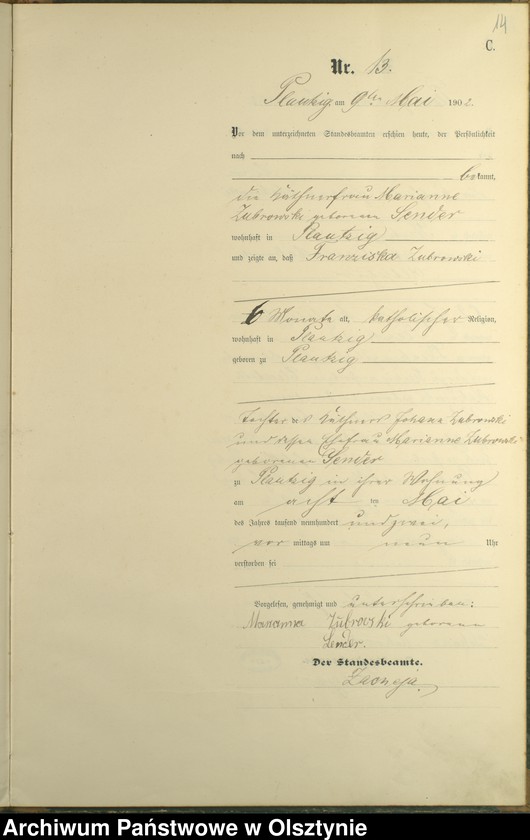 14
C.
Nr. 13.
Plautzig am 9ten Mai 1902.
Vor dem unterzeichneten Standesbeamten erschien heute, der Persönlichkeit
nach
bekannt,
die Käthnerfrau Marianne
Zubrowski geborenen Sender
wohnhaft in Plautzig
und zeigte an, daß Franziska Zubrowski
6 Monate alt, katholischer Religion,
wohnhaft in Plautzig
geboren zu Plautzig
Tochter des Käthners Johann Zubrowski
und dessen Ehefrau Marianne Zubrowski
geborenen Sender
zu Plautzig in ihrer Wohnung
am acht ten Mai
des Jahres tausend neunhundert und zwei,
vor mittags um neun Uhr
verstorben sei
Vorgelesen, genehmigt und unterschrieben:
Marianna Zubrovski geborene
Sender.
Der Standesbeamte.
Archiwum Państwowe w Olsztynie